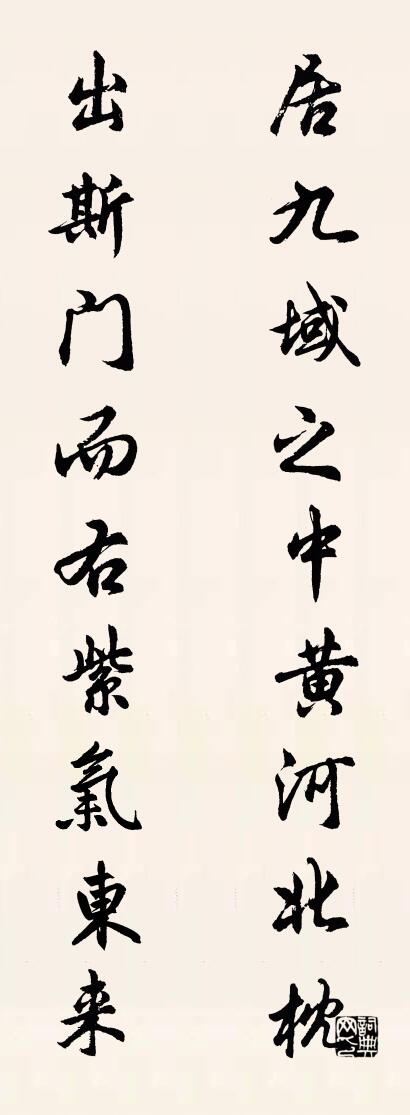 居九域之中黄河北枕
出斯门而右紫氣東来
詞典網